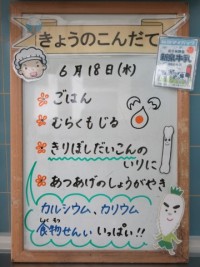 きょうのこんだて
6月18日(水)
ごはん
むらくもじる
きりぼしだいこんの
いりに
あつあげのしょうがやき
カルシウム、カリウム
しょくもつ
食物せんい いっぱい!!